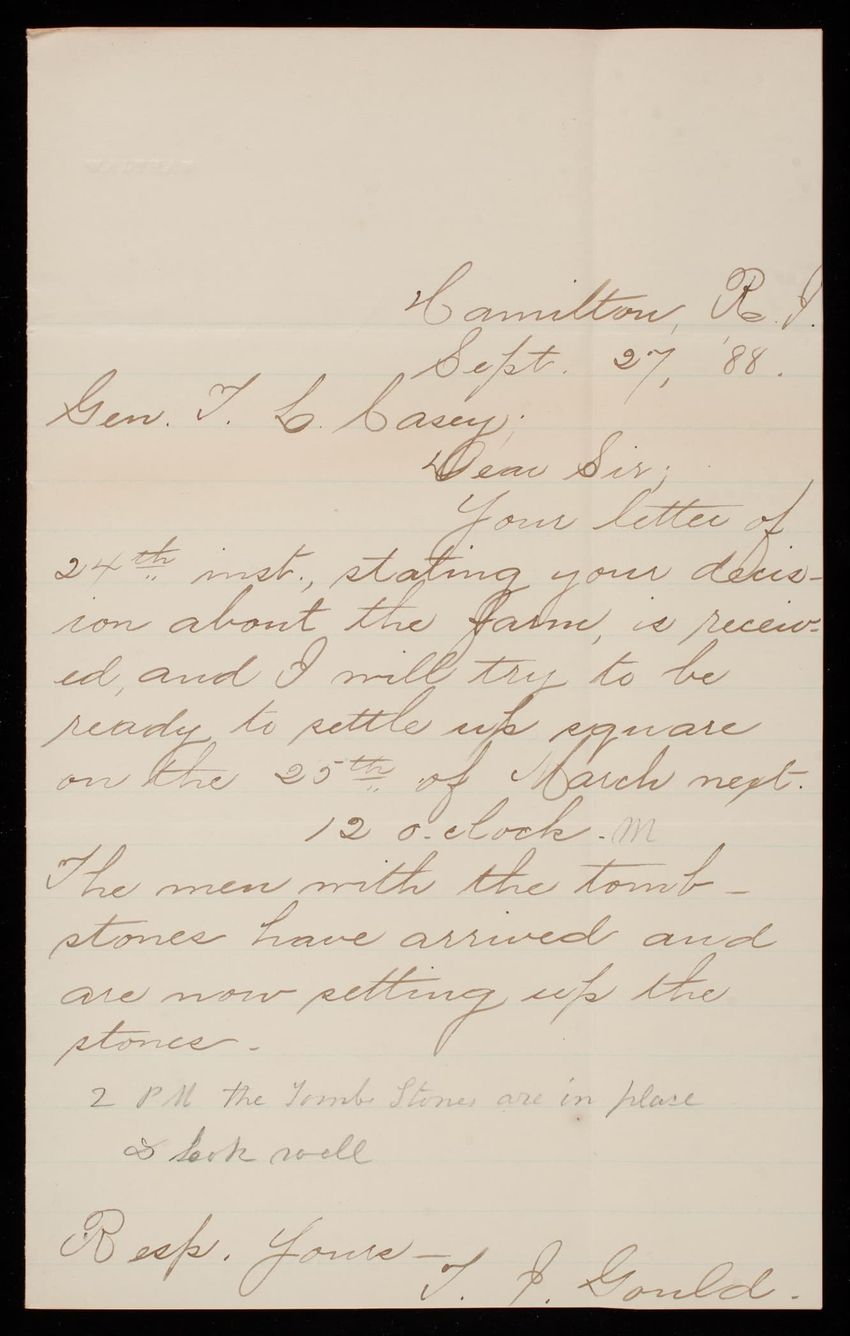 Hamilton, R. I.
Sept. 27, '88.
Gen. T. L. Casey;
Dear Sir;
Your letter of
24th inst., stating your decis-
ion about the farm, is receiv-
ed, and I will try to be
ready to settle up square
on the 25th of March next.
12 o-clock. M
The men with the tomb-
stones have arrived and
are now setting up the
stones.
2 PM the Tomb Stones are in place
& look well
Resp. Yours—
T. J. Gould.